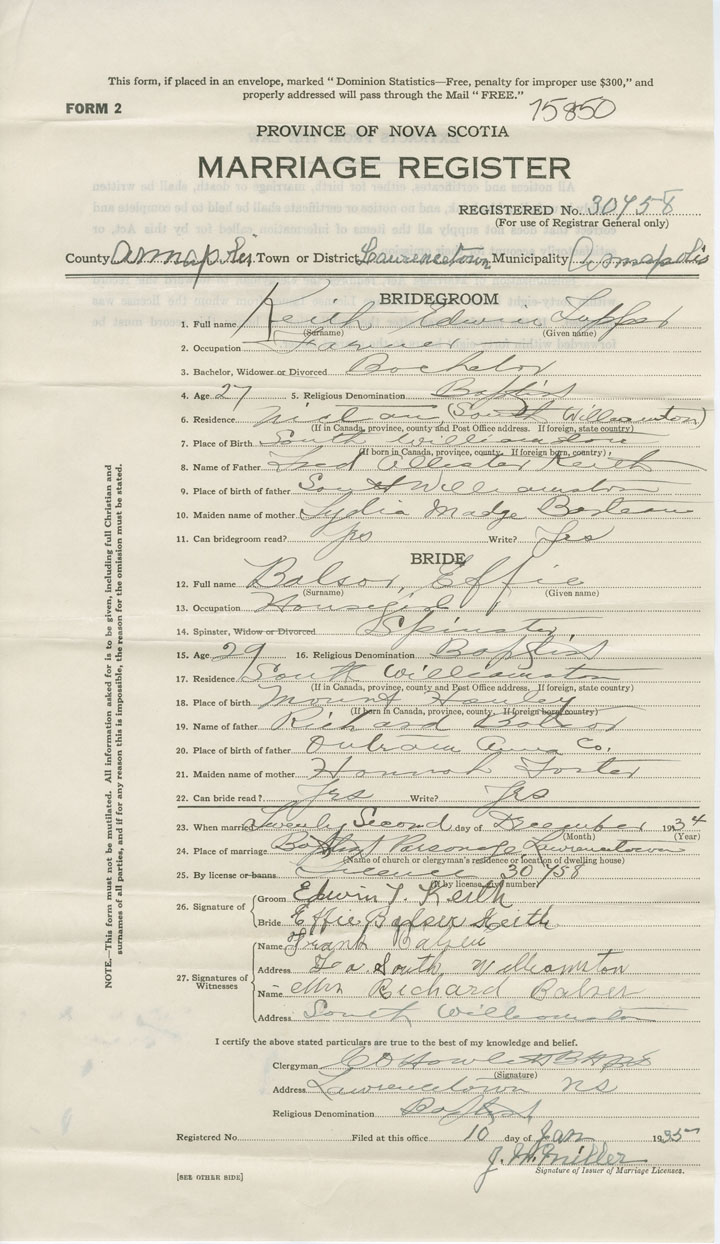 This form, if placed in an envelope, marked "Dominion Statistics—Free, penalty for improper use $300," and
properly addressed will pass through the Mail "FREE."
FORM 2
15850
PROVINCE OF NOVA SCOTIA
MARRIAGE REGISTER
REGISTERED No. 30458
(For use of Registrar General only)
County Annapolis Town or District Lawrencetown Municipality Annapolis
BRIDEGROOM
1. Full name Keith Edwin Tupper
(Surname) (Given name)
2. Occupation Farmer
3. Bachelor, Widower or Divorced Bachelor
4. Age 27 5. Religious Denomination Baptist
6. Residence Nictaux (South Williamston)
(If in Canada, province, county and Post Office address. If foreign, state country)
7. Place of Birth South Williamston
(If born in Canada, province, county. If foreign born, country)
8. Name of Father Fred Keith
9. Place of birth of father South Williamston
10. Maiden name of mother Lydia Madge
11. Can bridegroom read? Yes Write? Yes
BRIDE
12. Full name Balsor, Effie
(Surname) (Given name)
13. Occupation Housegirl
14. Spinster, Widow or Divorced Spinster
15. Age 29 16. Religious Denomination Baptist
17. Residence South Williamston
(If in Canada, province, county and Post Office address. If foreign, state country)
18. Place of birth Mount Hanley
(If born in Canada, province, county. If foreign born country)
19. Name of father Richard Balsor
20. Place of birth of father Outram Anna Co.
21. Maiden name of mother Hannah Foster
22. Can bride read? Yes Write? Yes
23. When married Twenty Second day of December 1934
(Month) (Year)
24. Place of marriage Baptist Parsonage Lawrencetown
(Name of church or clergyman's residence or location of dwelling house)
25. By license or banns Licence 30458
(If by license, give number)
26. Signature of Groom Edwin T. Keith
Bride Effie Balsor Keith
27. Signatures of Witnesses
Name Frank Balser
Address South Williamston
Name Mrs Richard Balser
Address South Williamston
I certify the above stated particulars are true to the best of my knowledge and belief.
Clergyman
(Signature)
Address Lawrencetown NS
Religious Denomination Baptist
Registered No. Filed at this office 10 day of Jan 1935
J. W. Miller
Signature of Issuer of Marriage Licenses.
[SEE OTHER SIDE]
NOTE.—This form must not be mutilated. All information asked for is to be given, including full Christian and
surnames of all parties, and if for any reason this is impossible, the reason for the omission must be stated.